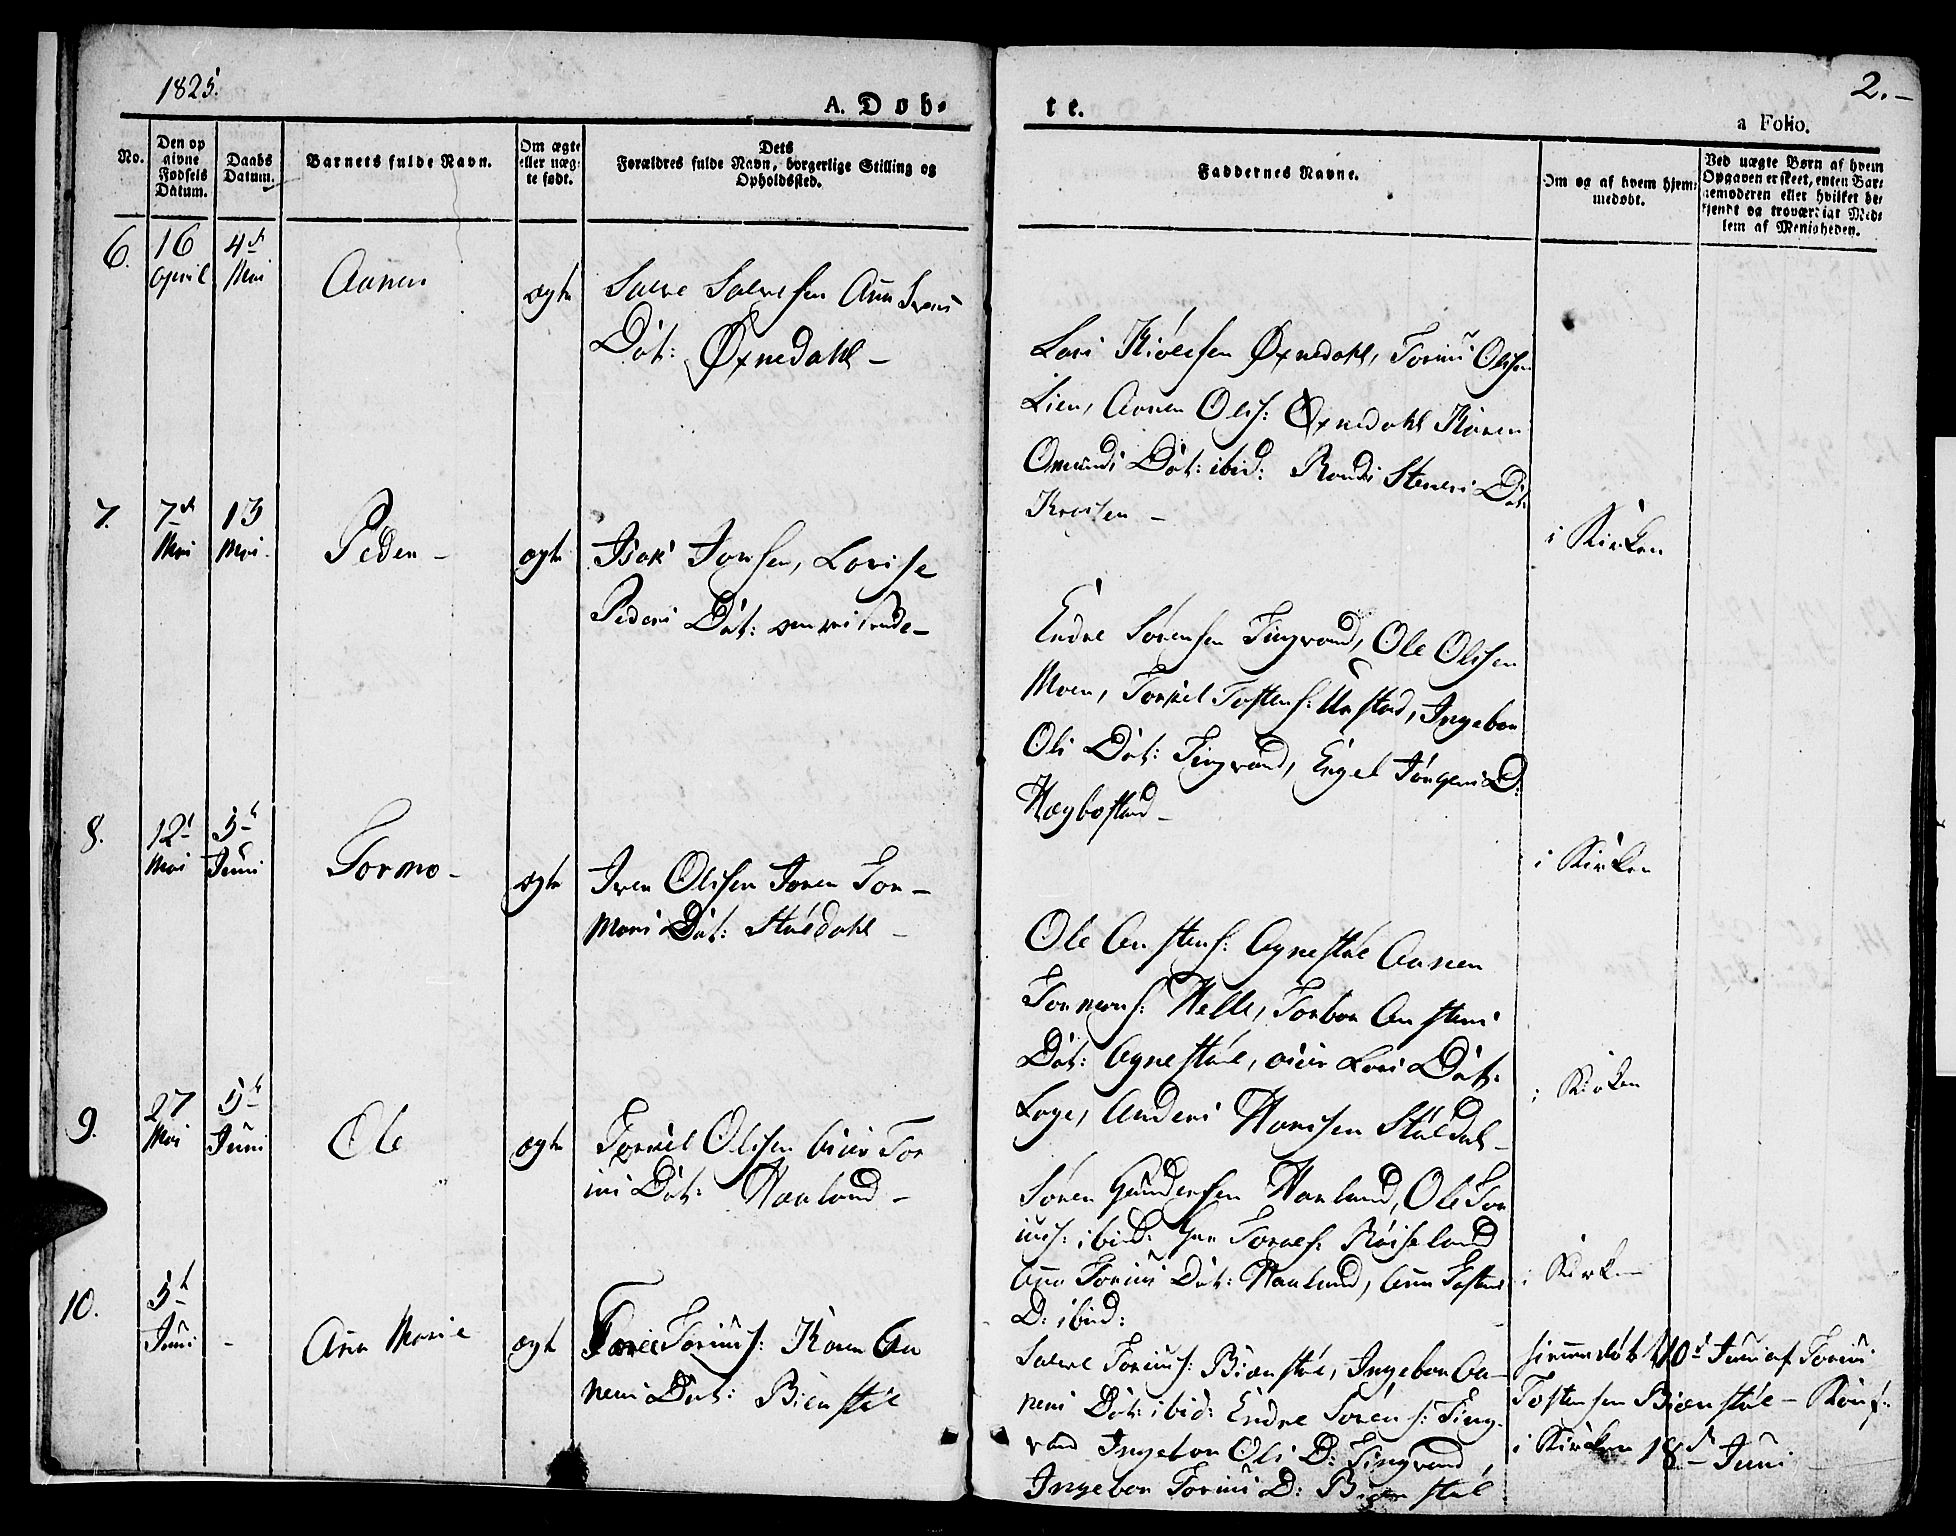 1825.
A. Døb-
te.
2.-
a Folio.
No.
Den op
givne
Fødsels
Datum.
Daabs
Datum.
Barnets fulde Navn.
Om ægte
eller uæg-
te født.
Dets
Forældres fulde Navn, borgerlige Stilling og
Opholdssted.
Faddernes Navne.
Om og af hvem hjem-
medøbt.
Ved uægte Børn af hvem
Opgaven er skeet, enten Bar-
nemoderen eller hvilket be-
kjendt og troværdigt Med-
lem af Menigheden.
6.
16
April
4de
Mai
Aanen
ægte
Salve Salvesen Ann Svens
Dót: Øxnedahl -
Lars Øxnedahl, Torius Olisen
Lien, Aanen Olis: Øxnedahl Karen
Omunds Dót: ibid: Randi Dót:
7.
7de
Mai
13
Mai
Peder -
ægte
Isak Jonsen, Lovise
Peders Dót: omreisende -
i Kirken
Endre Sørensen Tingvand, Ole Olisen
Moen, Torkel Tostens: Urstad, Ingebor
Olis Dót: Tingvand, Engel Jörgens D:
Hægbostad -
8.
12te
Mai
5te
Juni
Tormo -
ægte
Iver Olisen Joren Tor-
mons Dót: Ståldahl -
i Kirken
Ole Anstens: Agnestål Aanen
Tormons: Helle, Torbor Anstens
Dót: Agnestål, Lars Dót:
Loge, Anders Hansen Ståldal -
i Kirken
9.
27
Mai
5te
Juni
Ole
ægte
Torkel Olisen Tor
ius Dót: Haaland -
Sören Gundersen Haaland, Ole Tor
ius: ibid: Röiseland
Ann Torius Dót: Haaland, Ann Tostens
D: ibid:
i Kirken
10.
5te
Juni
-
Ann Marie
ægte
Torius: Karen Aa
nens Dót: Bienstål
Salve Torius: Bienstål, Ingebor Aa-
nens Dót: ibid: Endre Sörens: Ting-
vand Ingebor Olis D: Tingvand,
Ingebor Torius D: Bienstål
hiemmedöbt 10de Juni af Torius
Tostensen Bienstål - Konf:
i Kirken 18de Juni